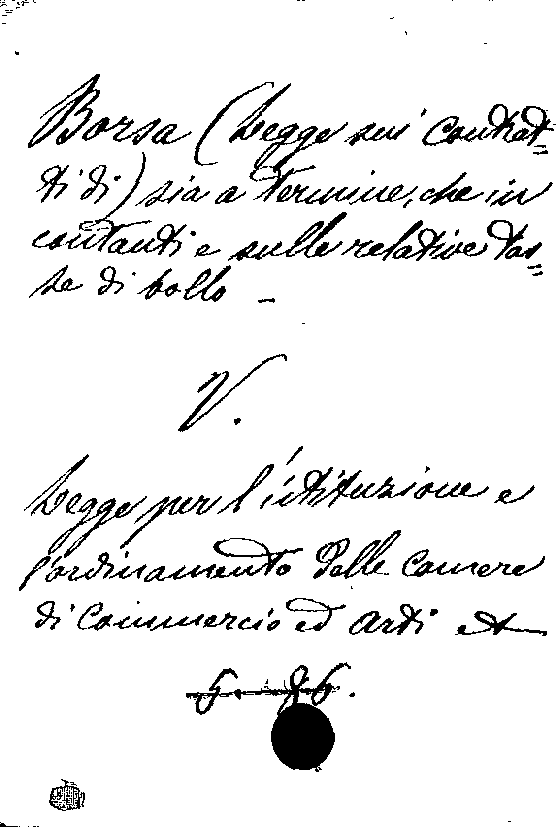 Borsa (Legge sui contrat=
ti di) sia a termine, che in
contanti e sulle relative tas=
se di bollo –
V.
Legge per l'istituzione e
l'ordinamento delle Camere
di Commercio ed arti